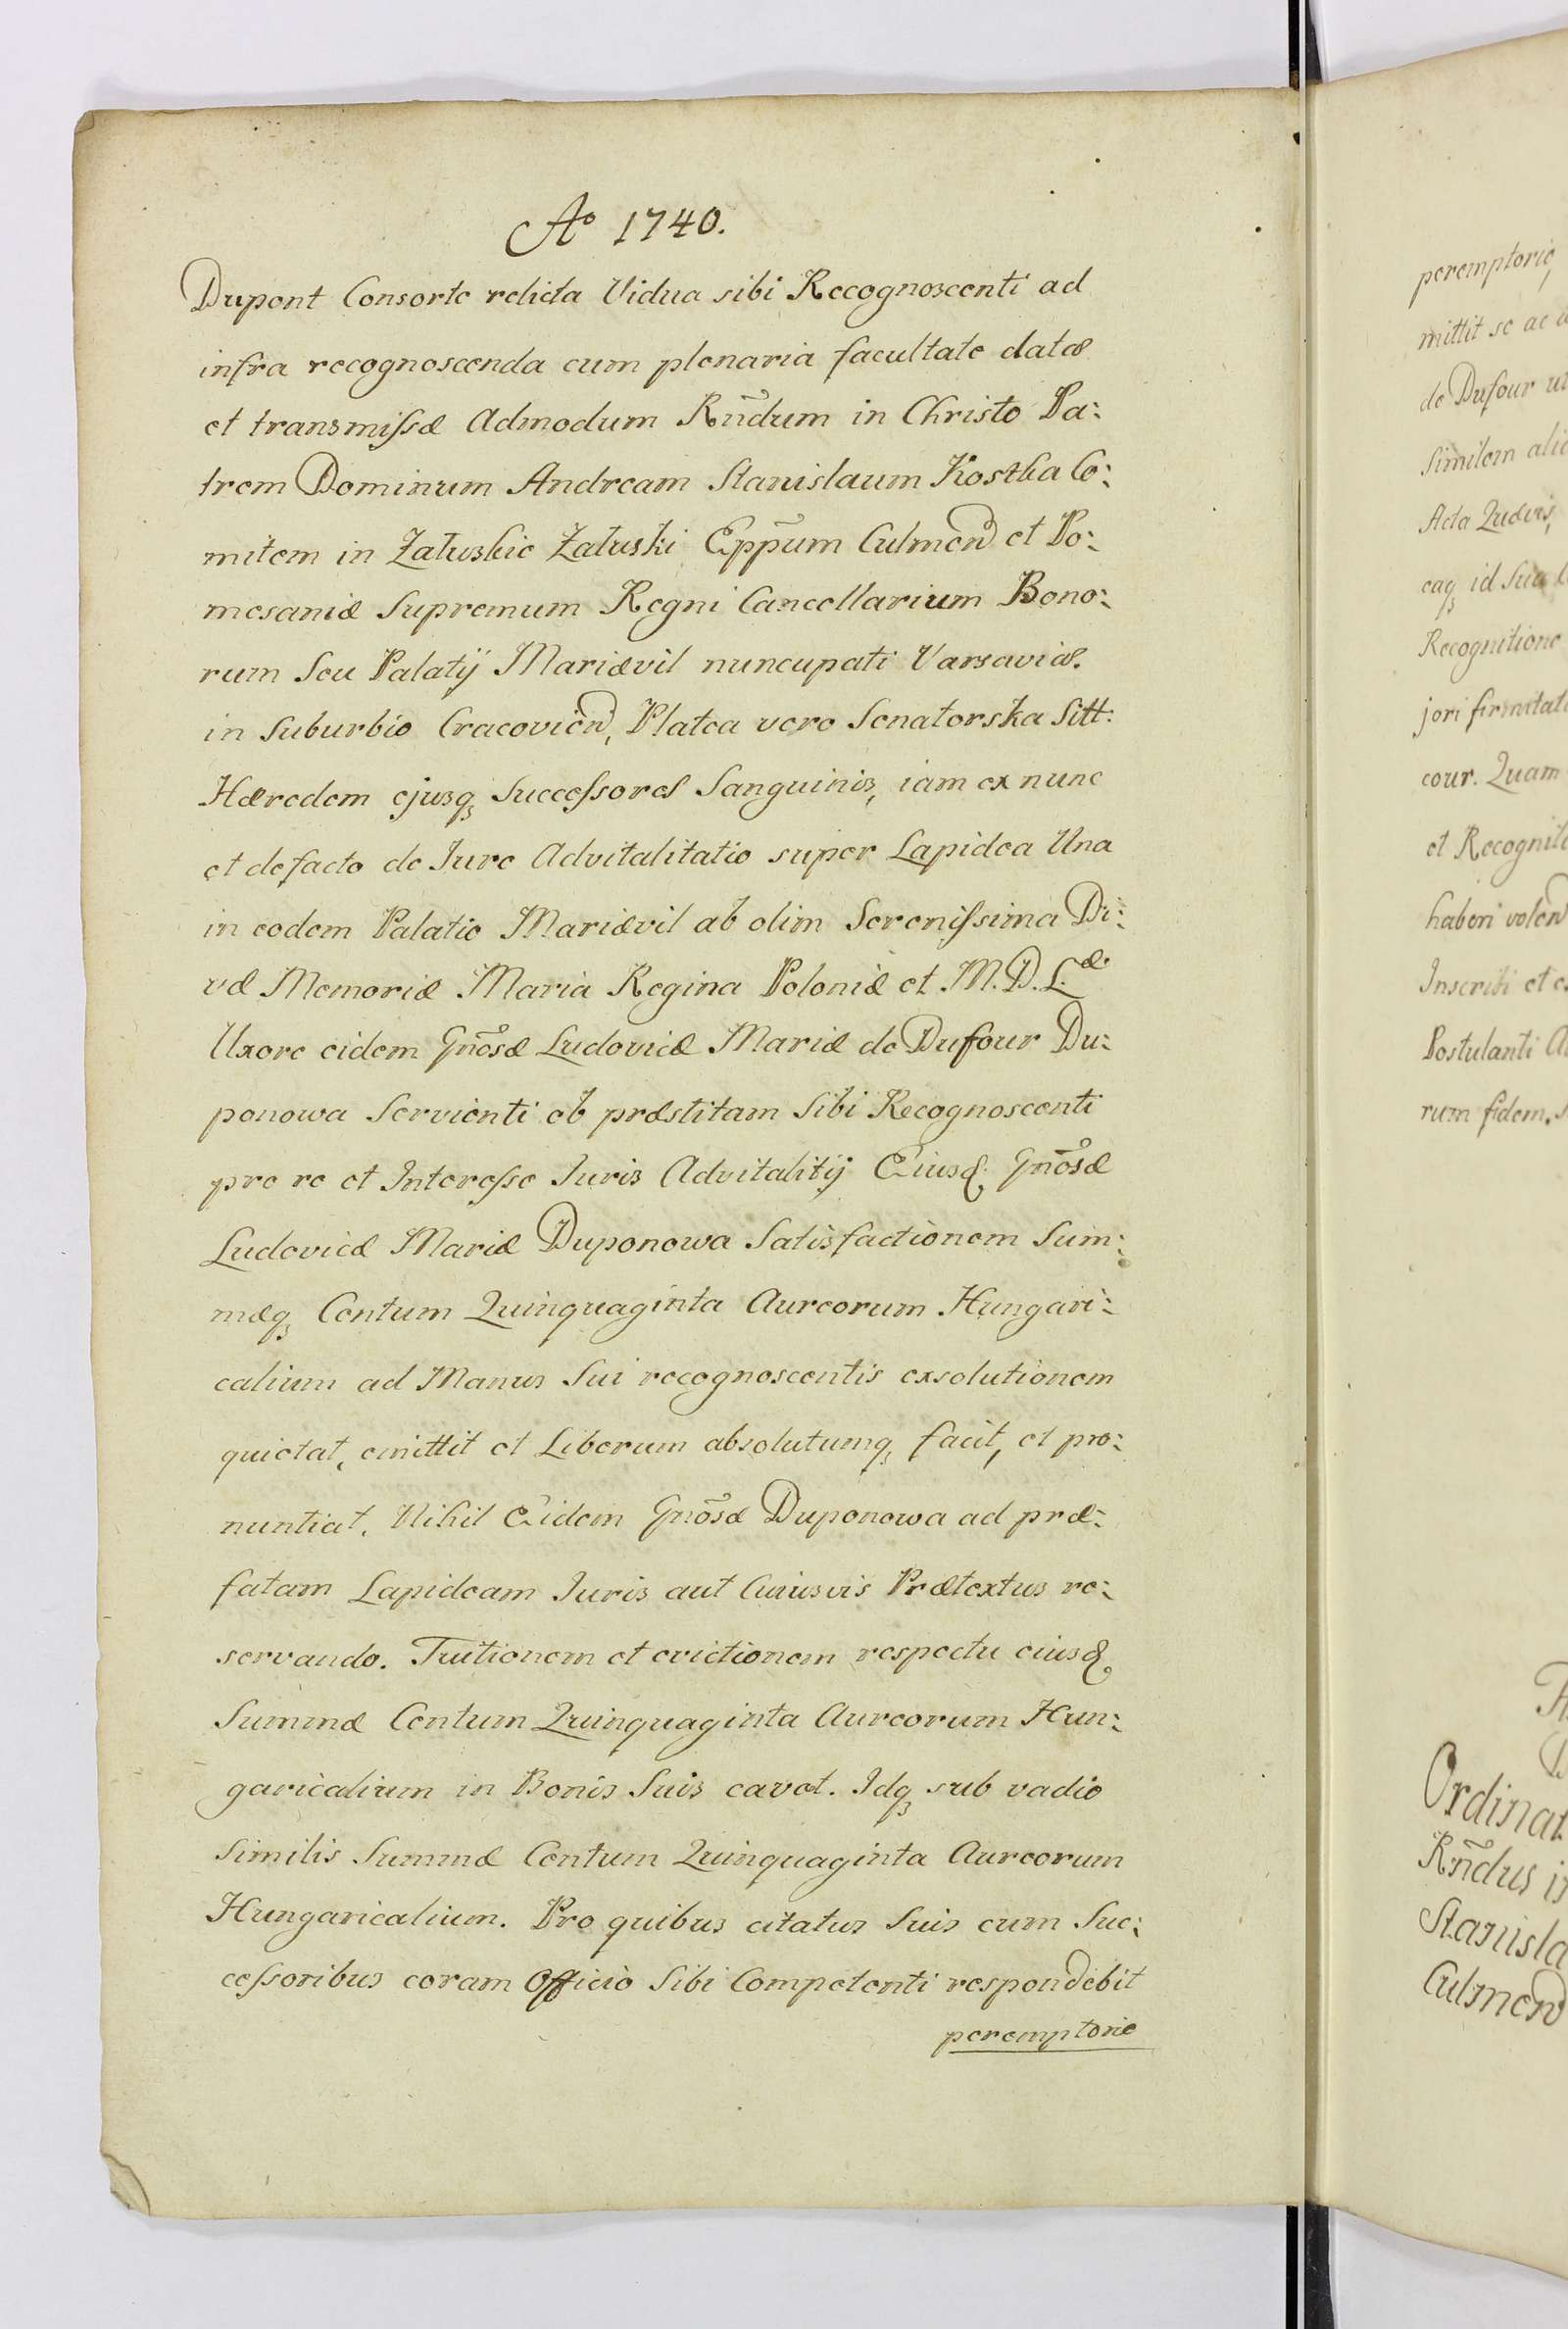 Aº 1740.
Dupont Consorte relicta Vidua sibi Recognoscenti ad
infra recognoscenda cum plenaria facultate datæ
et transmiſsæ Admodum Rñdum in Christo Pa:
trem Dominum Andream Stanislaum Kostka Co:
mitem in Załuskie Załuski Epp̃um Culmen̄ et Po:
mesaniæ Supremum Regni Cancellarium Bono:
rum Seu Palatÿ Mariævil nuncupati Varsaviæ
in Suburbio Cracovien̄, Platea vero Senatorska Sitt:
Hæredem ejusq₃ Succeſsores Sanguinis, iam ex nunc
et defacto de Jure Advitalitatio super Lapidea Una
in eodem Palatio Mariævil ab olim Sereniſsima Di:
væ Memoriæ Maria Regina Poloniæ et M.D.L.æ
Uxore eidem Gñosæ Ludovicæ Mariæ de Dufour Du:
ponowa Servienti ob præstitam Sibi Recognoscenti
pro re et Intereſse Juris Advitalitÿ Eiusd. Gñosæ
Ludovicæ Mariæ Duponowa Satisfactionem Sum:
mæq₃ Centum Quinquaginta Aureorum Hungari:
calium ad Manus Sui recognoscentis exsolutionem
quietat, emittit et Liberum absolutumq₃ facit, et pro:
nuntiat, Nihil Eidem Gñosæ Duponowa ad præ:
fatam Lapideam Juris aut Cuiusvis Prætextus re:
servando. Tuitionem et evictionem respectu eiusd.
Summæ Centum Quinquaginta Aureorum Hun:
garicalium in Bonis Suis cavet. Idq₃ sub vadio
Similis Summæ Centum Quinquaginta Aureorum
Hungaricalium. Pro quibus citatus Suis cum Suc:
ceſsoribus coram Officio Sibi Competenti respondebit
peremptorie
peremptorie,
mittit se ac
de Dufour
Similem
Acta
eaq₃ id
Recognitione
jori
cour. Quam
et
haberi volen̄
Inscribi et
Postulanti
rum fidem.
Ordinat
Rñdus
Stanisla
Culmen̄